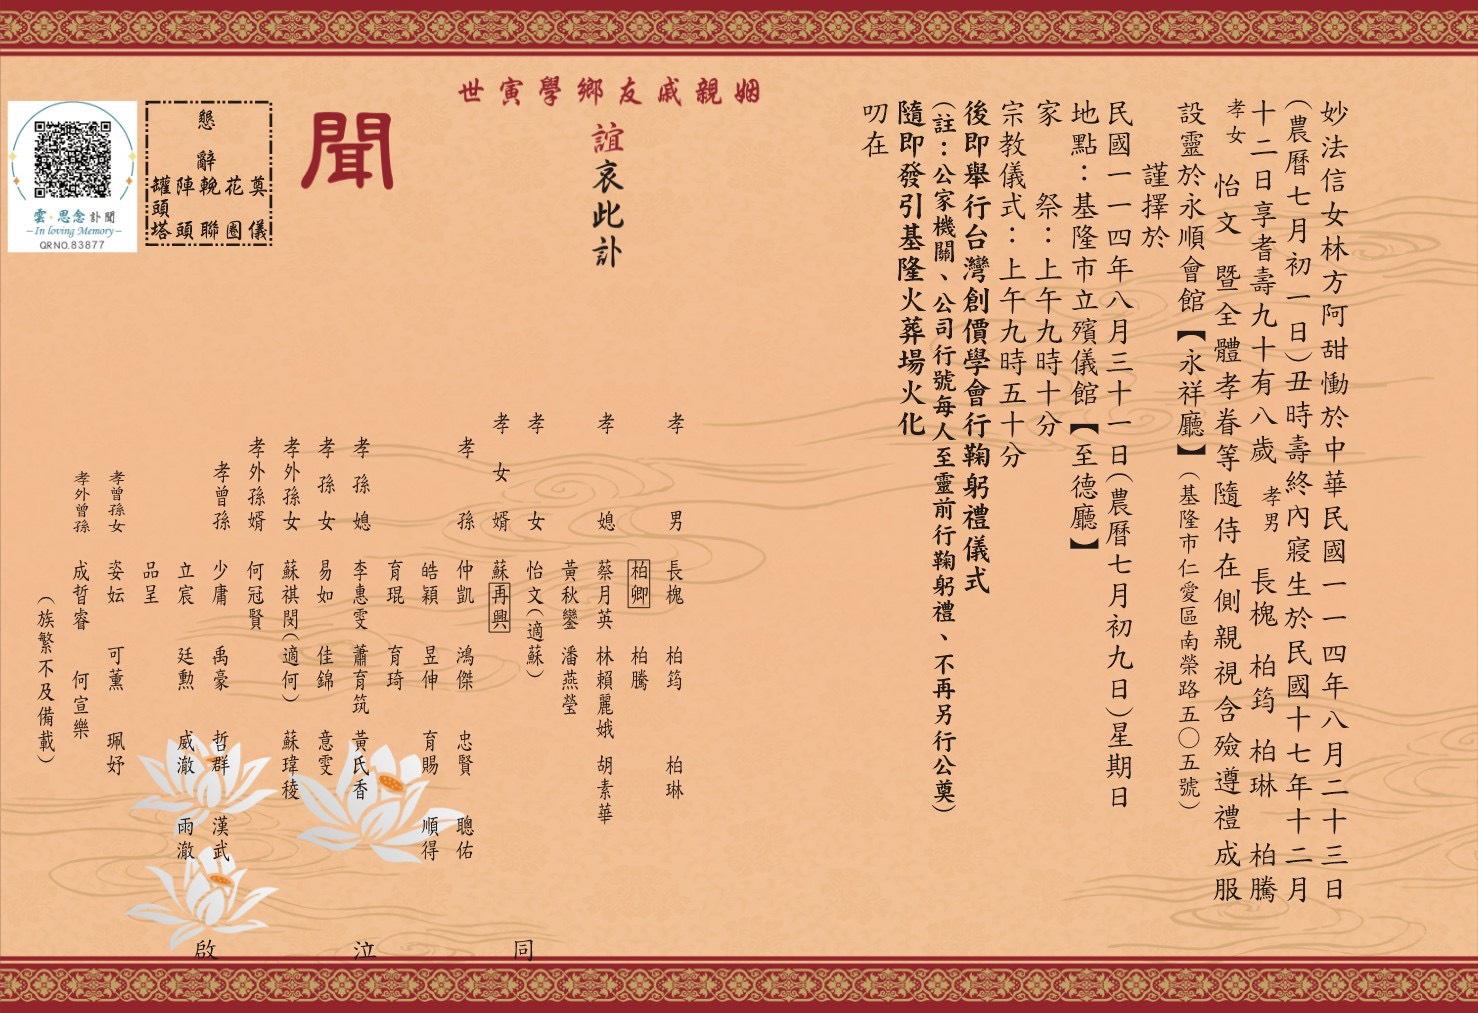 妙法信女林方阿甜慟於中華民國一一四年八月二十三日
(農曆七月初一日)丑時壽終內寢生於民國十七年十二月
十二日享耆壽九十有八歲 孝男 長槐 柏筠 柏琳 柏騰
孝女 怡文 暨全體孝眷等隨侍在側親視含殮遵禮成服
設靈於永順會館【永祥廳】(基隆市仁愛區南榮路五〇五號)
謹擇於
民國一一四年八月三十一日(農曆七月初九日)星期日
地點：基隆市立殯儀館【至德廳】
家 祭：上午九時十分
宗教儀式：上午九時五十分
後即舉行台灣創價學會行鞠躬禮儀式
(註：公家機關、公司行號每人至靈前行鞠躬禮、不再另行公奠)
隨即發引基隆火葬場火化
叨在
姻親戚友鄉學寅世
誼哀此訃
聞
孝男 長槐 柏筠 柏琳
柏卿 柏騰
孝媳 蔡月英 林賴麗娥 胡素華
黃秋鑾 潘燕瑩
孝女 怡文(適蘇)
孝女婿 蘇再興
孝孫 仲凱 鴻傑 忠賢 聰佑
皓穎 昱伸 育賜 順得
育琨 育琦
孝孫媳 李惠雯 蕭育筑 黃氏香
孝孫女 易如 佳錦 意雯
孝外孫女 蘇祺閔(適何) 蘇瑋稜
孝外孫婿 何冠賢
孝曾孫 少庸 禹豪 哲群 漢武
立宸 廷勲 威澈 雨澈
品呈
孝曾孫女 姿妘 可薰 珮妤
孝外曾孫 成晢睿 何宣樂
(族繁不及備載)
同 泣 啟
懇辭
奠儀
花圈
輓聯
陣頭
罐頭塔
雲·思念 訃聞
In loving Memory
QRNO.83877